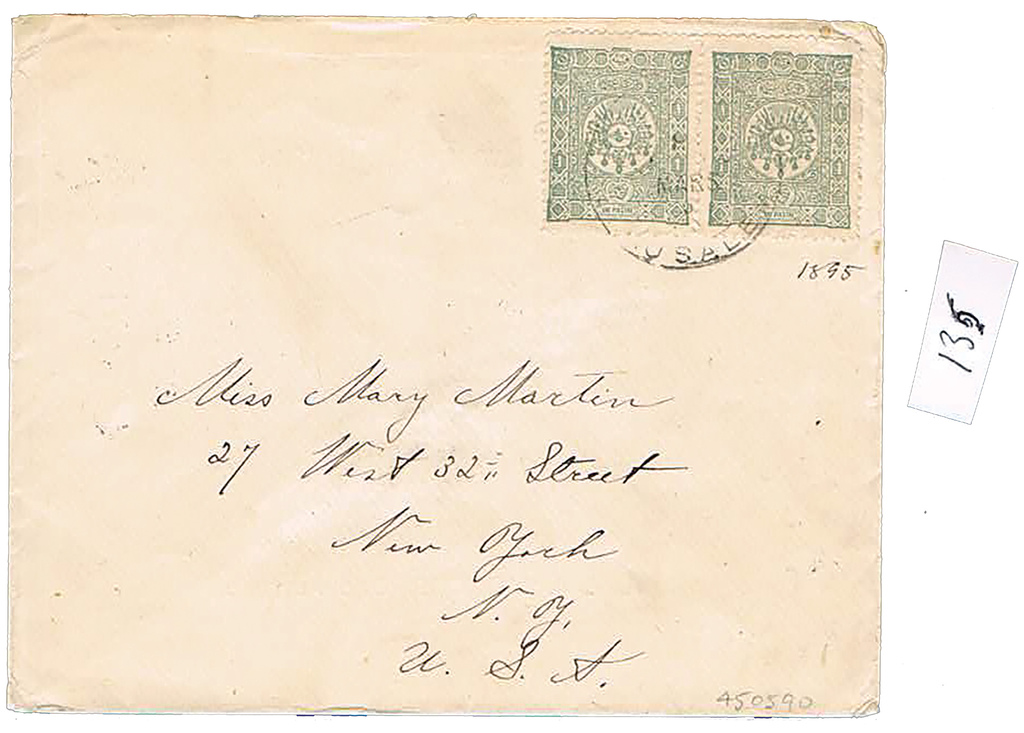 MARS
USALE
1895
135
Miss Mary Martin
27 West 32 Street
New York
N. Y.
U. S. A.
450590